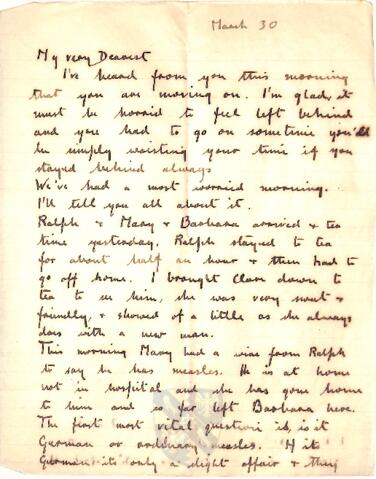 March 30
My very Dearest
I've heard from you this morning
that you are moving on. I'm glad, it
must be horrid to feel left behind
and you had to go on sometime you'ld
be simply wasting your time if you
stayed behind always
We've had a most worried morning.
I'll tell you all about it.
Ralph & Mary & Barbara arrived & tea
time yesterday. Ralph stayed to tea
for about half an hour & then had to
go off home. I brought Clare down to
tea to see him, she was very sweet &
friendly, & showed of a little as she always
does with a new man.
This morning Mary had a wire from Ralph
to say he has measles. He is at home
not in hospital and she has gone home
to him and so far left Barbara here.
The first most vital question is, is it
German or ordinary measles. If it
German it's only a slight affair & they